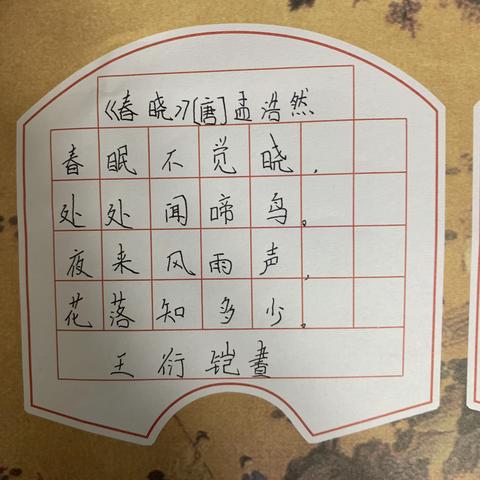 《春晓》[唐]孟浩然
春眠不觉晓，
处处闻啼鸟。
夜来风雨声，
花落知多少。
王衍铠書